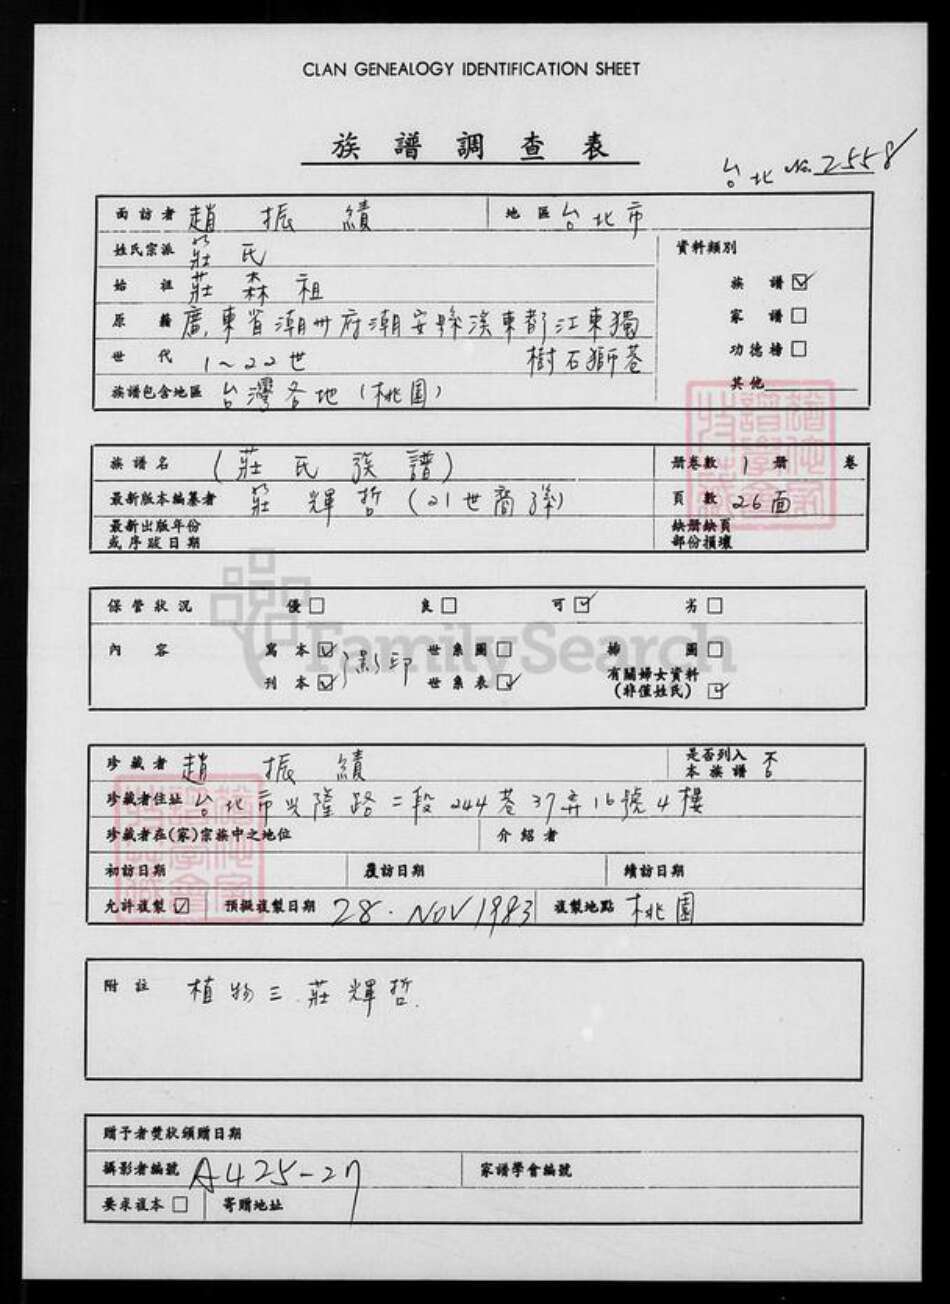 CLAN GENEALOGY IDENTIFICATION SHEET
族譜調查表
台北 No. 2558
面訪者 趙振績 地區 台北市
姓氏宗派 莊氏 資料類別
始祖 莊森祖 族譜 ☑
原籍 廣東省潮州府潮安縣溪東都江東獨 家譜 □
世代 1~22世 樹石獅巷 功德榜 □
族譜包含地區 台灣各地(桃園) 其他
族譜名 (莊氏族譜) 册卷數 1 册 卷
最新版本編纂者 莊輝哲(21世裔孫) 頁數 26面
最新出版年份或序跋日期 缺册缺頁部份損壞
保管狀況 優 □ 良 □ 可 ☑ 劣 □
內容 寫本 ☑ 影印 世系圖 □ 插圖 □
刊本 ☑ 世系表 ☑ 有關婦女資料(非僅姓氏) ☑
FamilySearch
珍藏者 趙振績 是否列入本族譜 否
珍藏者住址 台北市興隆路二段244巷37弄16號4樓
珍藏者在(家)宗族中之地位 介紹者
初訪日期 覆訪日期 續訪日期
允許複製 ☑ 預擬複製日期 28. NOV 1983 複製地點 桃園
附註 植物三.莊輝哲.
贈予者獎狀頒贈日期
攝影者編號 A425-27 家譜學會編號
要求複本 □ 寄贈地址